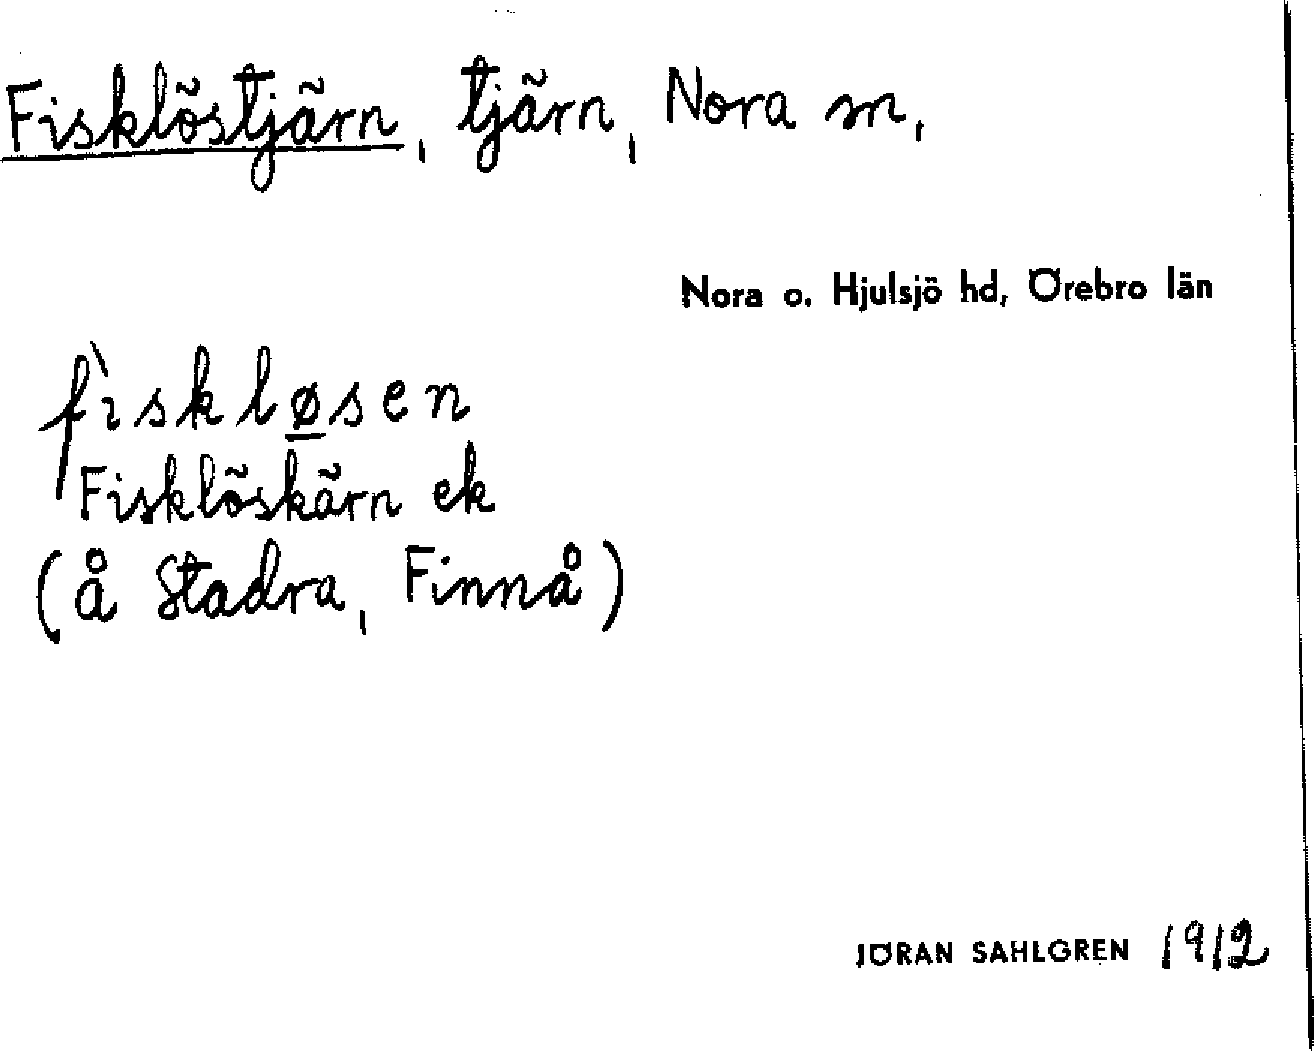 Fisklöstjärn, tjärn, Nora sn,
Nora o. Hjulsjö hd, Örebro län
fìskløsen
Fisklöskärn ek
(å Stadra, Finnå)
JÖRAN SAHLGREN 1912